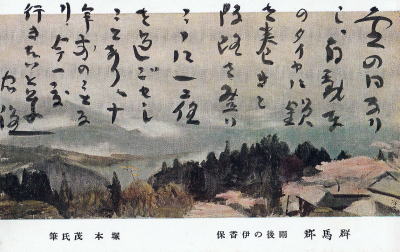 雪の日なり
し自動車
のタイヤに鎖
を巻きて
険路を登り
ここに一夜
を過ごせし
ことあり 十
年前のことな
り 今一度
行きたいと思ふ
群馬縣 雨後の伊香保
堀本茂氏筆